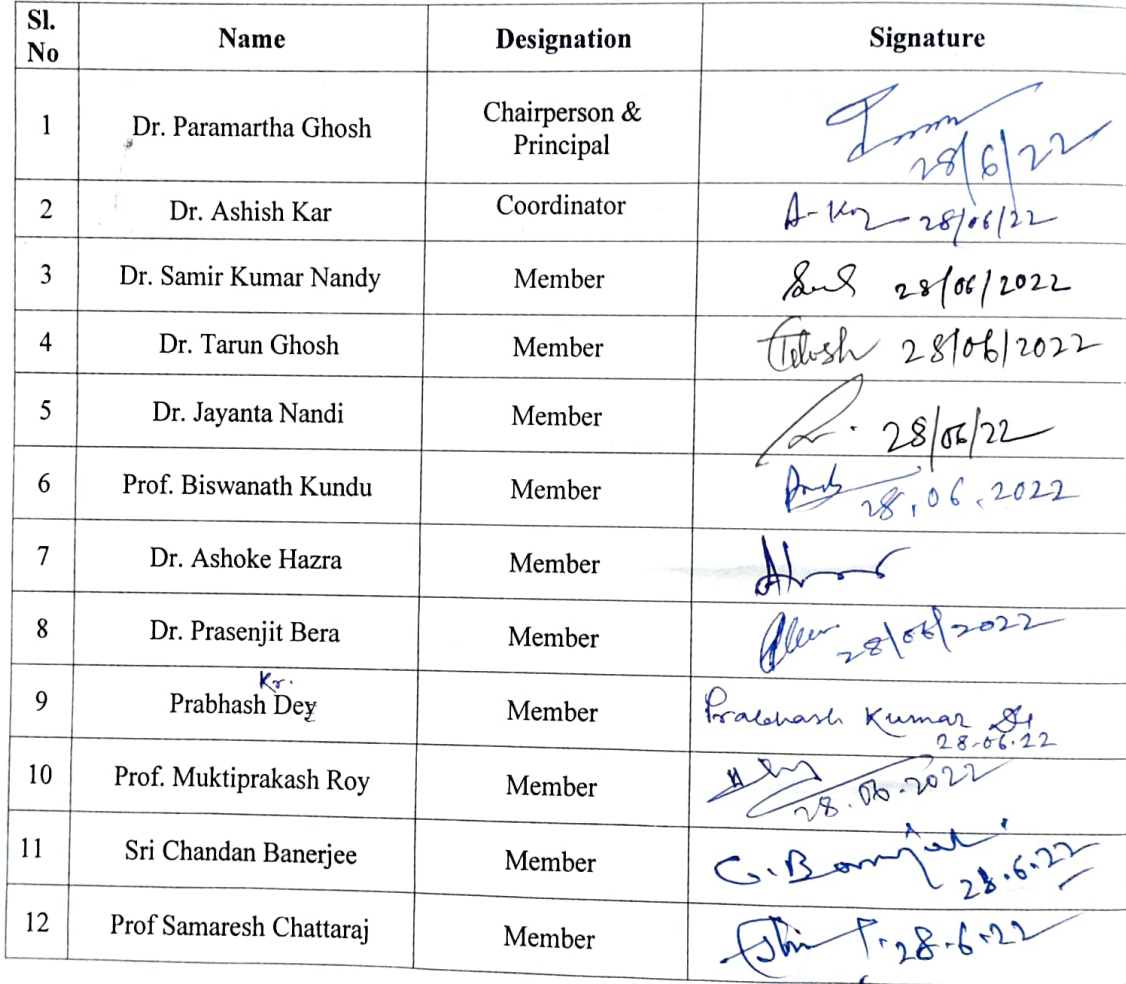 Sl. No Name Designation Signature
1 Dr. Paramartha Ghosh Chairperson & Principal 28/6/22
2 Dr. Ashish Kar Coordinator A-Kar 28/06/22
3 Dr. Samir Kumar Nandy Member 28/06/2022
4 Dr. Tarun Ghosh Member 28/06/2022
5 Dr. Jayanta Nandi Member 28/06/22
6 Prof. Biswanath Kundu Member 28.06.2022
7 Dr. Ashoke Hazra Member
8 Dr. Prasenjit Bera Member 28/06/2022
Kr.
9 Prabhash Dey Member Prabhash Kumar
28.06.22
10 Prof. Muktiprakash Roy Member 28.06.2022
11 Sri Chandan Banerjee Member C. Banerjee 28.6.22
12 Prof Samaresh Chattaraj Member 28.6.22